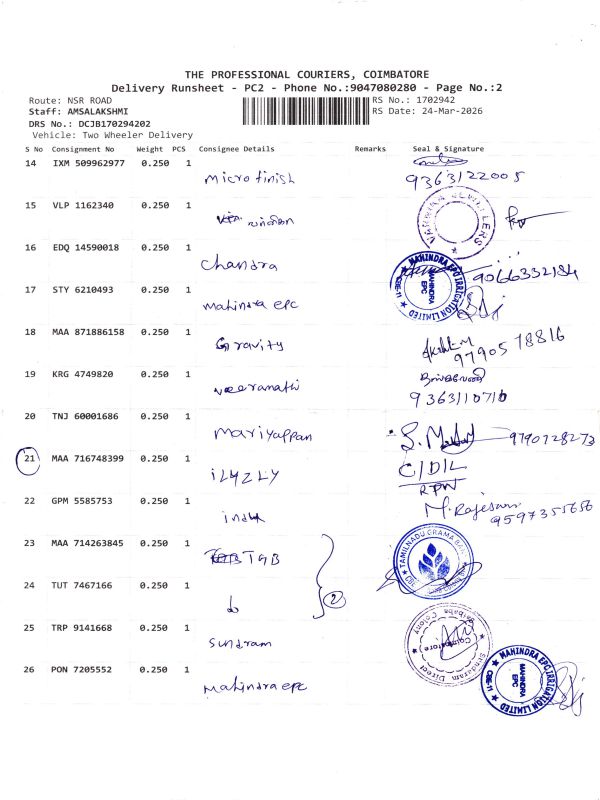 THE PROFESSIONAL COURIERS, COIMBATORE
Delivery Runsheet - PC2 - Phone No.:9047080280 - Page No.:2
Route: NSR ROAD
RS No.: 1702942
Staff: AMSALAKSHMI
RS Date: 24-Mar-2026
DRS No.: DCJB170294202
Vehicle: Two Wheeler Delivery
S No Consignment No Weight PCS Consignee Details Remarks Seal & Signature
14 IXM 509962977 0.250 1
Micro finish 9363122005
15 VLP 1162340 0.250 1
16 EDQ 14590018 0.250 1
Chandra 9066332184
MAHINDRA EPC IRRIGATION LIMITED
MAHINDRA EPC
CBE-11
17 STY 6210493 0.250 1
mahindra epc
18 MAA 871886158 0.250 1
Gravity 9790578816
19 KRG 4749820 0.250 1
Veeramathi 9363110710
20 TNJ 60001686 0.250 1
Mariyappan 9790728273
21 MAA 716748399 0.250 1
C/D/L
RPW
22 GPM 5585753 0.250 1
M. Rajesam
9597355656
23 MAA 714263845 0.250 1
TGB
TAMILNADU GRAMA BANK
24 TUT 7467166 0.250 1
2
25 TRP 9141668 0.250 1
Sundram
Sundaram Direct
Saibaba Colony
Coimbatore
26 PON 7205552 0.250 1
Mahindra epc
MAHINDRA EPC IRRIGATION LIMITED
MAHINDRA EPC
CBE-11